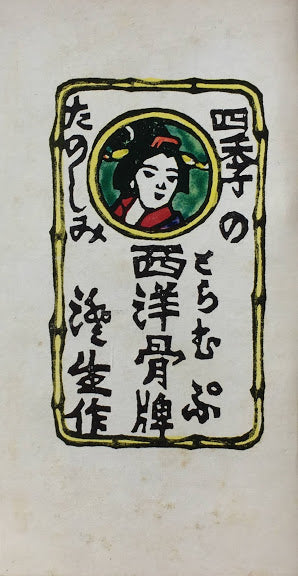 四季の
たのしみ
とらむぷ
西洋骨牌
澄生作